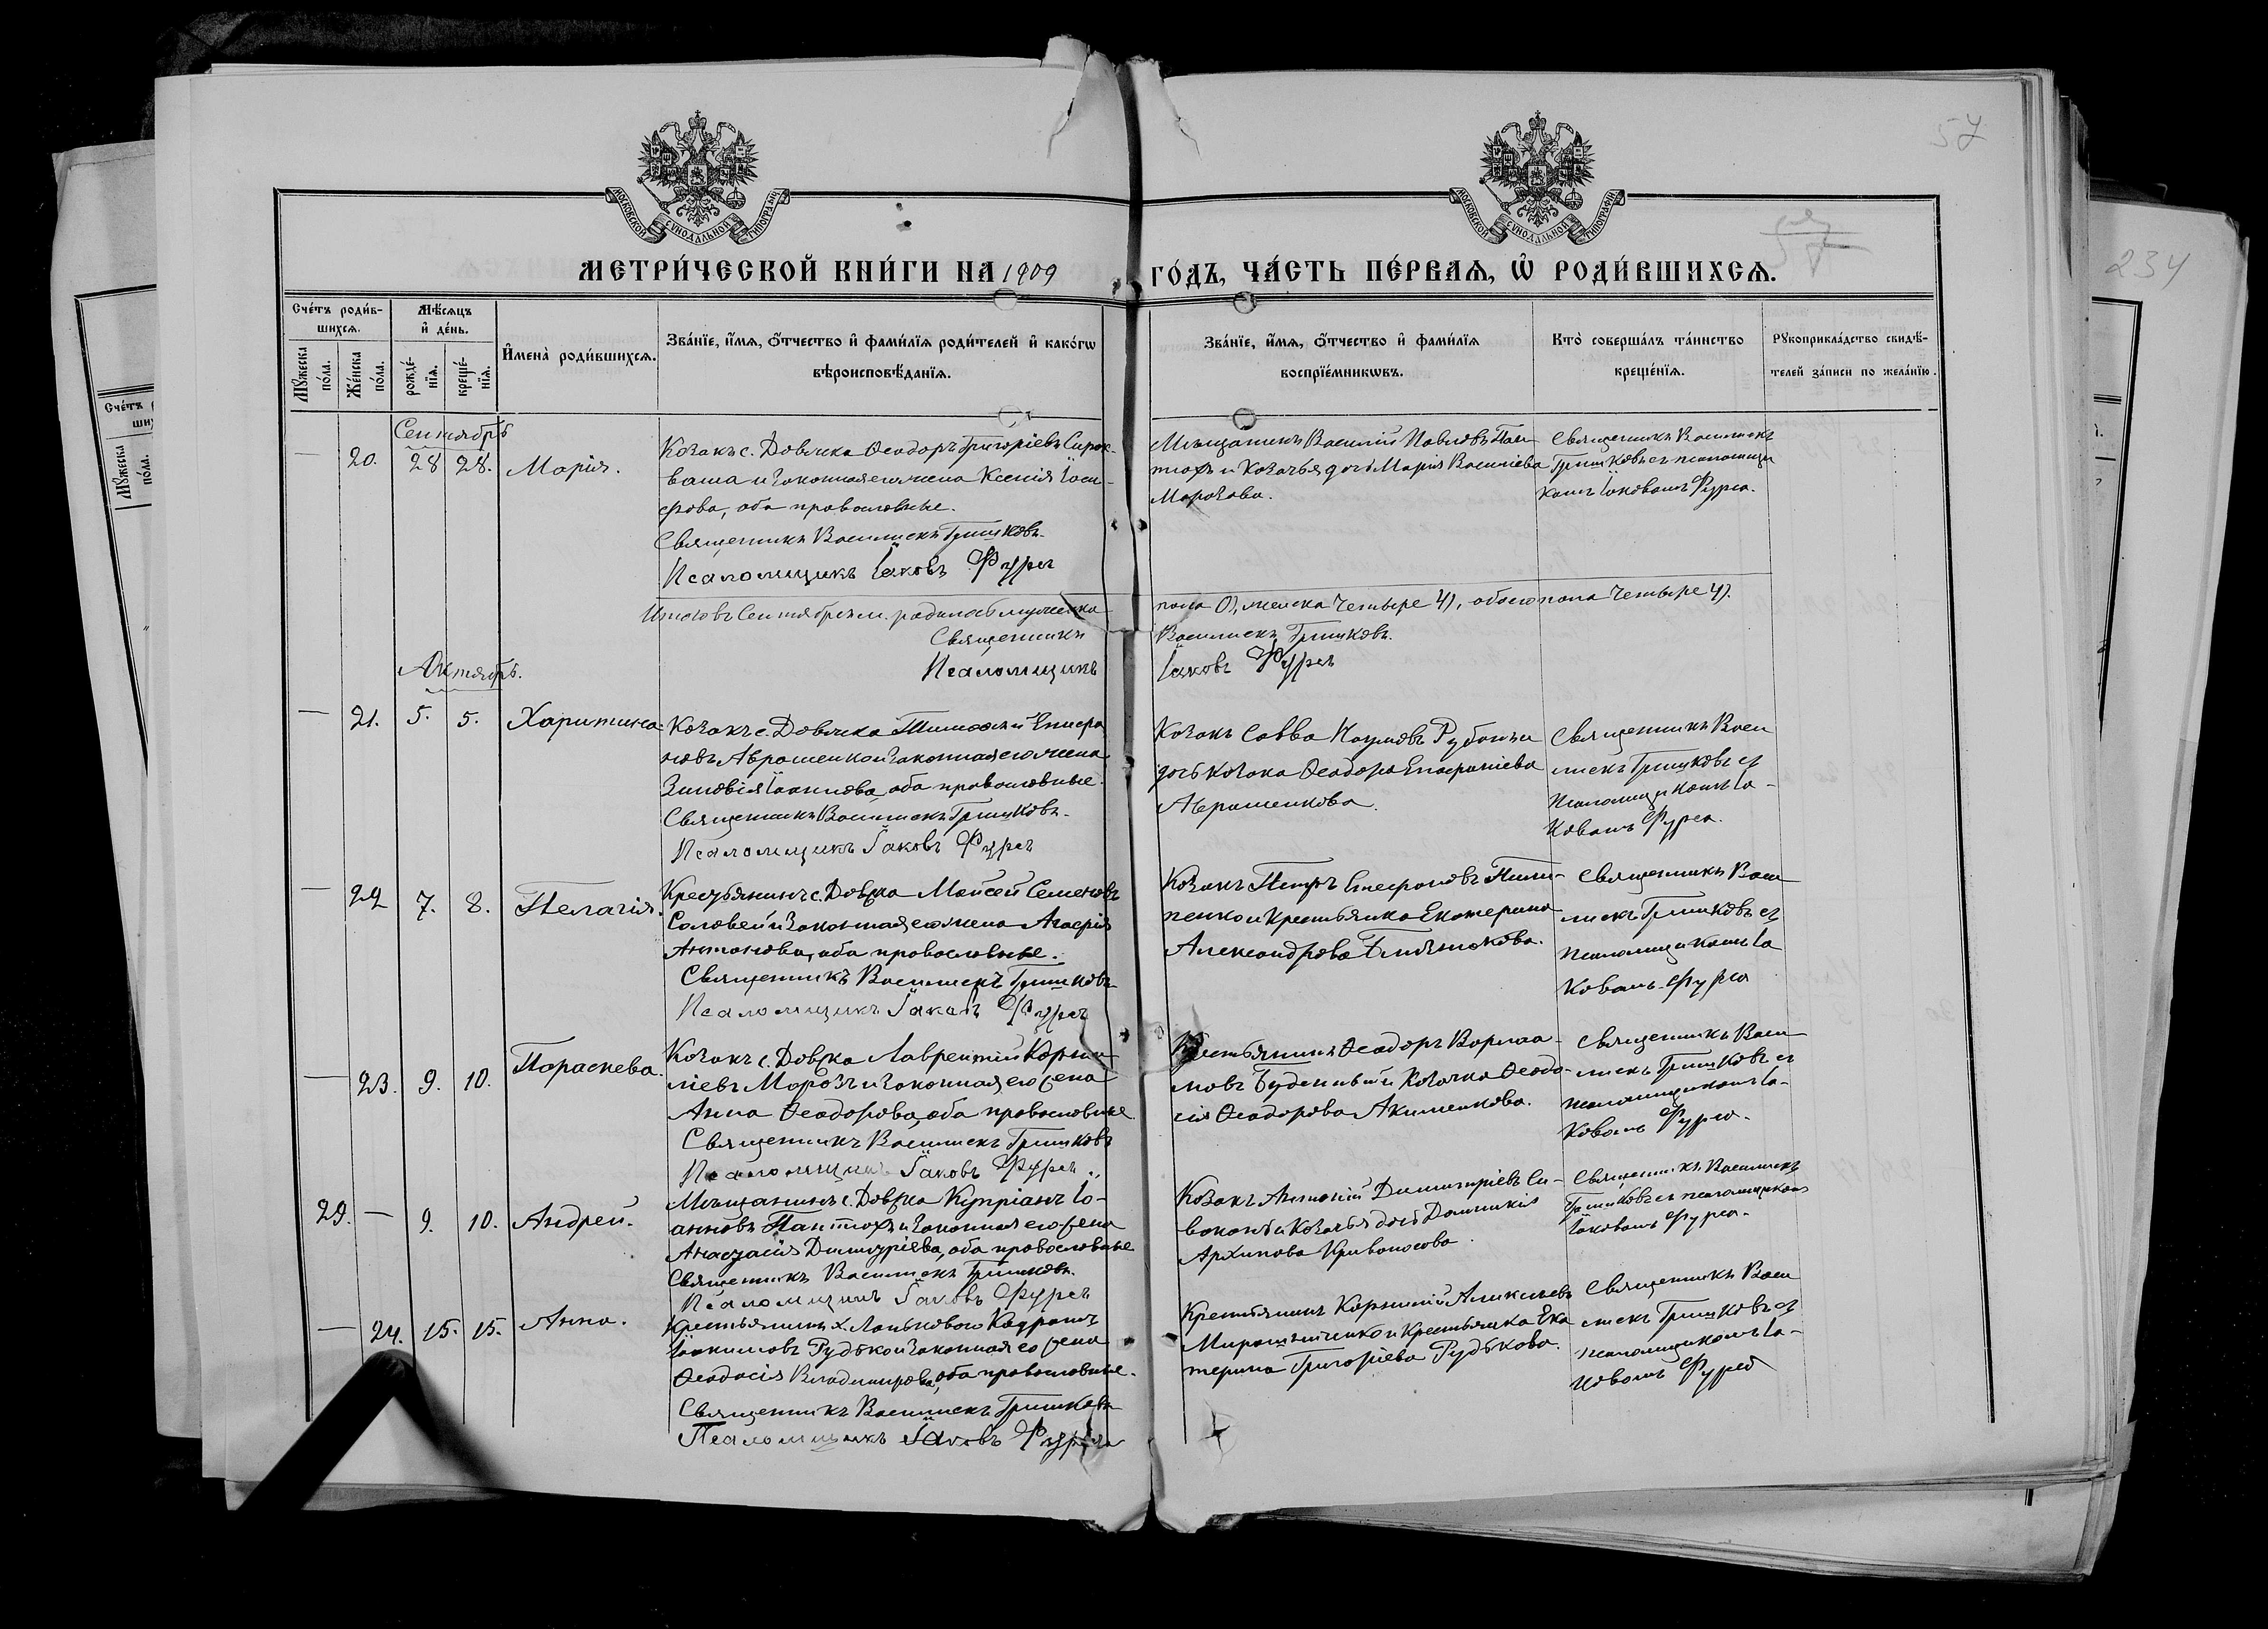 57
234
МОСКОВСКОЙ СѴНОДАЛЬНОЙ ТИПОГРАФІИ
МОСКОВСКОЙ СѴНОДАЛЬНОЙ ТИПОГРАФІИ
МЕТРИ́ЧЕСКОЙ КНИ́ГИ НА 1909 ГО́ДЪ, ЧА́СТЬ ПЕ́РВАѦ, Ѡ҆ РОДИ́ВШИХСѦ.
Сче́тъ роди́в-
шихсѧ.
Мꙋ́жеска по́ла.
Же́нска по́ла.
Мѣ́сѧцъ
и҆ де́нь.
рожде́-
нїѧ.
креще́-
нїѧ.
И҆мена̀ роди́вшихсѧ.
Зва́нїе, и҆́мѧ, ѻ҆́тчество и҆ фами́лїѧ роди́телей и҆ како́гѡ
вѣроисповѣ́данїѧ.
Зва́нїе, и҆́мѧ, ѻ҆́тчество и҆ фами́лїѧ
воспрїе́мникѡвъ.
Кто̀ соверша́лъ та́инство
креще́нїѧ.
Рꙋкоприкла́дство свидѣ́-
телей за́писи по жела́нїю.
Сентябрь
— 20. 28 28. Марія.
Козакъ с. Довжка Ѳеодоръ Григоріевъ Сирок-
ваша и законная его жена Ксенія Іоси-
фова, оба православные.
Священникъ Василискъ Гришковъ.
Псаломщикъ Іаковъ Фурса
Мѣщанинъ Василій Павловъ Пан-
тюхъ и Козачья дочь Марія Василіева
Морозова.
Священникъ Василискъ
Гришковъ съ псаломщи
комъ Іаковомъ Фурса.
Итого въ Сентябрѣ м. родилось мужеска пола 0), женска Четыре 4), обоего пола Четыре 4).
Священникъ Василискъ Гришковъ.
Псаломщикъ Іаковъ Фурса
Октябрь.
— 21. 5. 5. Харитина.
Козакъ с. Довжка Тимоѳей Епифа
новъ Аврашенко и законная его жена
Зиновія Іоаннова, оба православные.
Священникъ Василискъ Гришковъ.
Псаломщикъ Іаковъ Фурса
Козакъ Савва Наумовъ Рубанъ и
дочь козака Ѳеодора Епифаніева
Аврашенкова.
Священникъ Васи
лискъ Гришковъ съ
псаломщикомъ Іа-
ковомъ Фурса.
— 22 7. 8. Пелагія.
Крестьянинъ с. Довжка Моисей Семеновъ
Соловей и законная его жена Агафія
Антонова, оба православные.
Священникъ Василискъ Гришковъ
Псаломщикъ Іаковъ Фурса
Козакъ Петръ Епифановъ Пили-
пенко и Крестьянка Екатерина
Александрова
Священникъ Васи
лискъ Гришковъ съ
псаломщикомъ Іа
ковомъ Фурса
— 23. 9. 10. Параскева.
Козакъ с. Довжка Лаврентій Корни-
ліевъ Морозъ и законная его жена
Анна Ѳеодорова, оба православные
Священникъ Василискъ Гришковъ
Псаломщикъ Іаковъ Фурса.
Крестьянинъ Ѳеодоръ Варлаа-
мовъ и Козачка Ѳеодо-
сія Ѳеодорова Акименкова.
Священникъ Васи
лискъ Гришковъ съ
псаломщикомъ Іа-
ковомъ Фурса.
29. — 9. 10. Андрей.
Мѣщанинъ с. Довжка Кипріанъ Іо-
анновъ Пантюхъ и законная его жена
Анастасія Димитріева, оба православные
Священникъ Василискъ Гришковъ.
Псаломщикъ Іаковъ Фурса
Козакъ Антоній Димитріевъ Си-
воконь и Козачья дочь Домникія
Архипова Кривоносова.
Священникъ Василискъ
Гришковъ съ псаломщикомъ
Іаковомъ Фурса.
— 24. 15. 15. Анна.
Крестьянинъ х. Ланькового Кодратъ
Іоакимовъ Рудько и законная его жена
Ѳеодосія Владимірова, оба православные.
Священникъ Василискъ Гришковъ
Псаломщикъ Іаковъ Фурса
Крестьянинъ Корнилій
Мирошниченко и Крестьянка Ека
терина Григоріева Рудькова.
Священникъ Васи
лискъ Гришковъ съ
псаломщикомъ Іа-
ковомъ Фурса